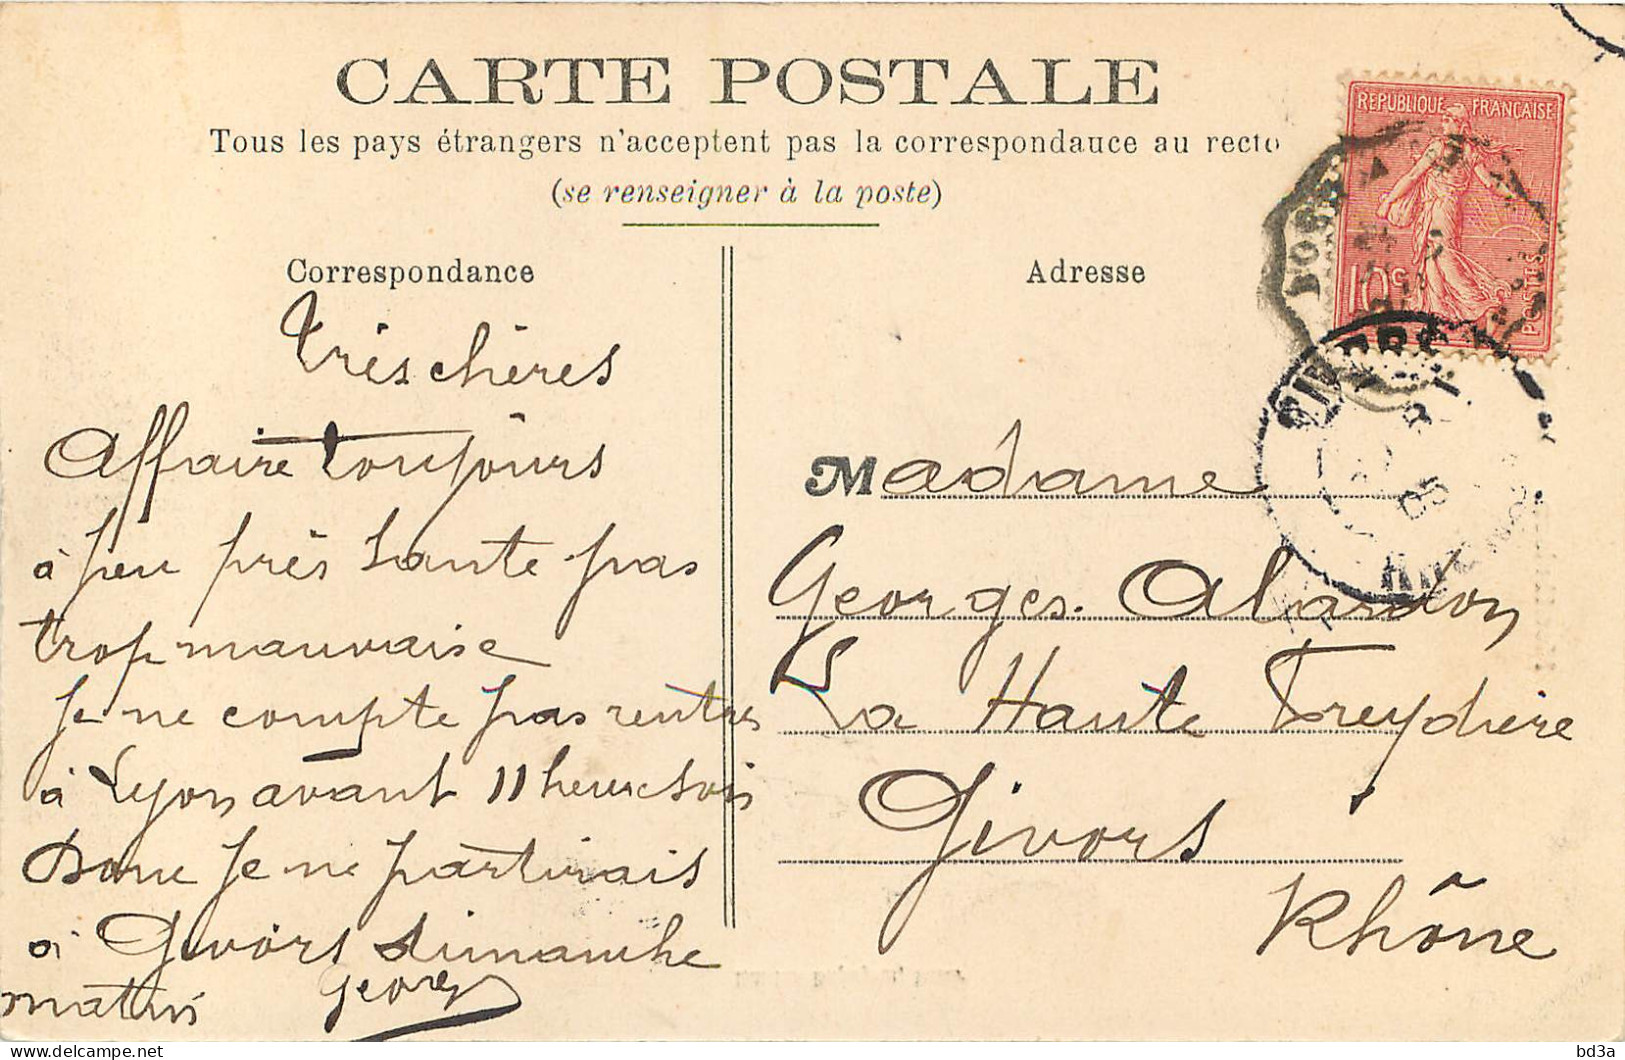 CARTE POSTALE
Tous les pays étrangers n'acceptent pas la correspondance au recto
(se renseigner à la poste)
Correspondance
Très chères
Affaire toujours
à peu près Sante pas
trop mauvaise
Je ne compte pas rentrer
à Lyon avant 11 heures soir
Donc je ne partirais
à Givors dimanche
matin
Georges
Adresse
REPUBLIQUE FRANÇAISE
10c
POSTES
GIVORS
05
Madame
Georges Alardon
La Haute Freydière
Givors
Rhône
bd3a